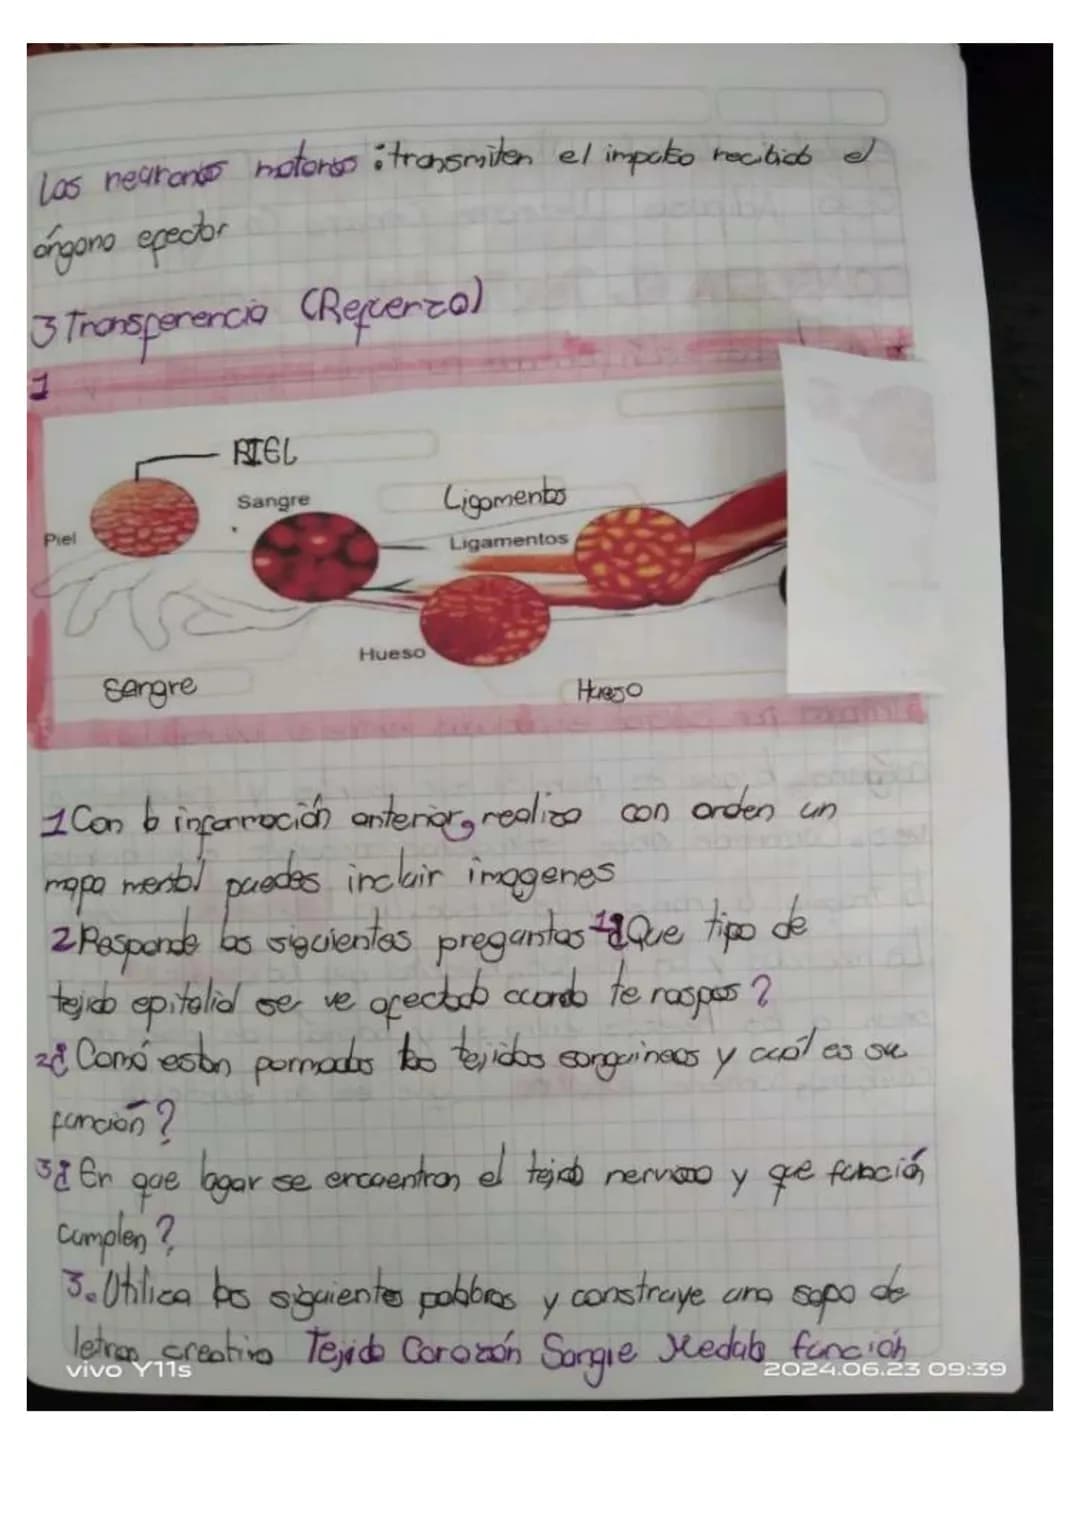 Las neuronas motoras : transmiten el impulso recibido el
órgano efector
3 Transferencia (Refuerzo)
1
PIEL
Sangre
Ligamentos
Piel
Ligamentos
Hueso
Sangre
Hueso
1 Con la información anterior, realiza con orden un
mapa mental puedes incluir imagenes
2 Responde las siguientes preguntas 1¿Que tipo de
tejido epitelial se ve afectado cuando te raspas ?
2¿ Comó estan formados los tejidos sanguineos y cuál es su
función ?
3¿ En que lugar se encuentran el tejido nervioso y que función
cumplen ?
3. Utilica las siguientes palabras y construye una sopa de
letras creativa Tejido Corazón Sangre Medula función
vivo Y11s
2024.06.23 09:39